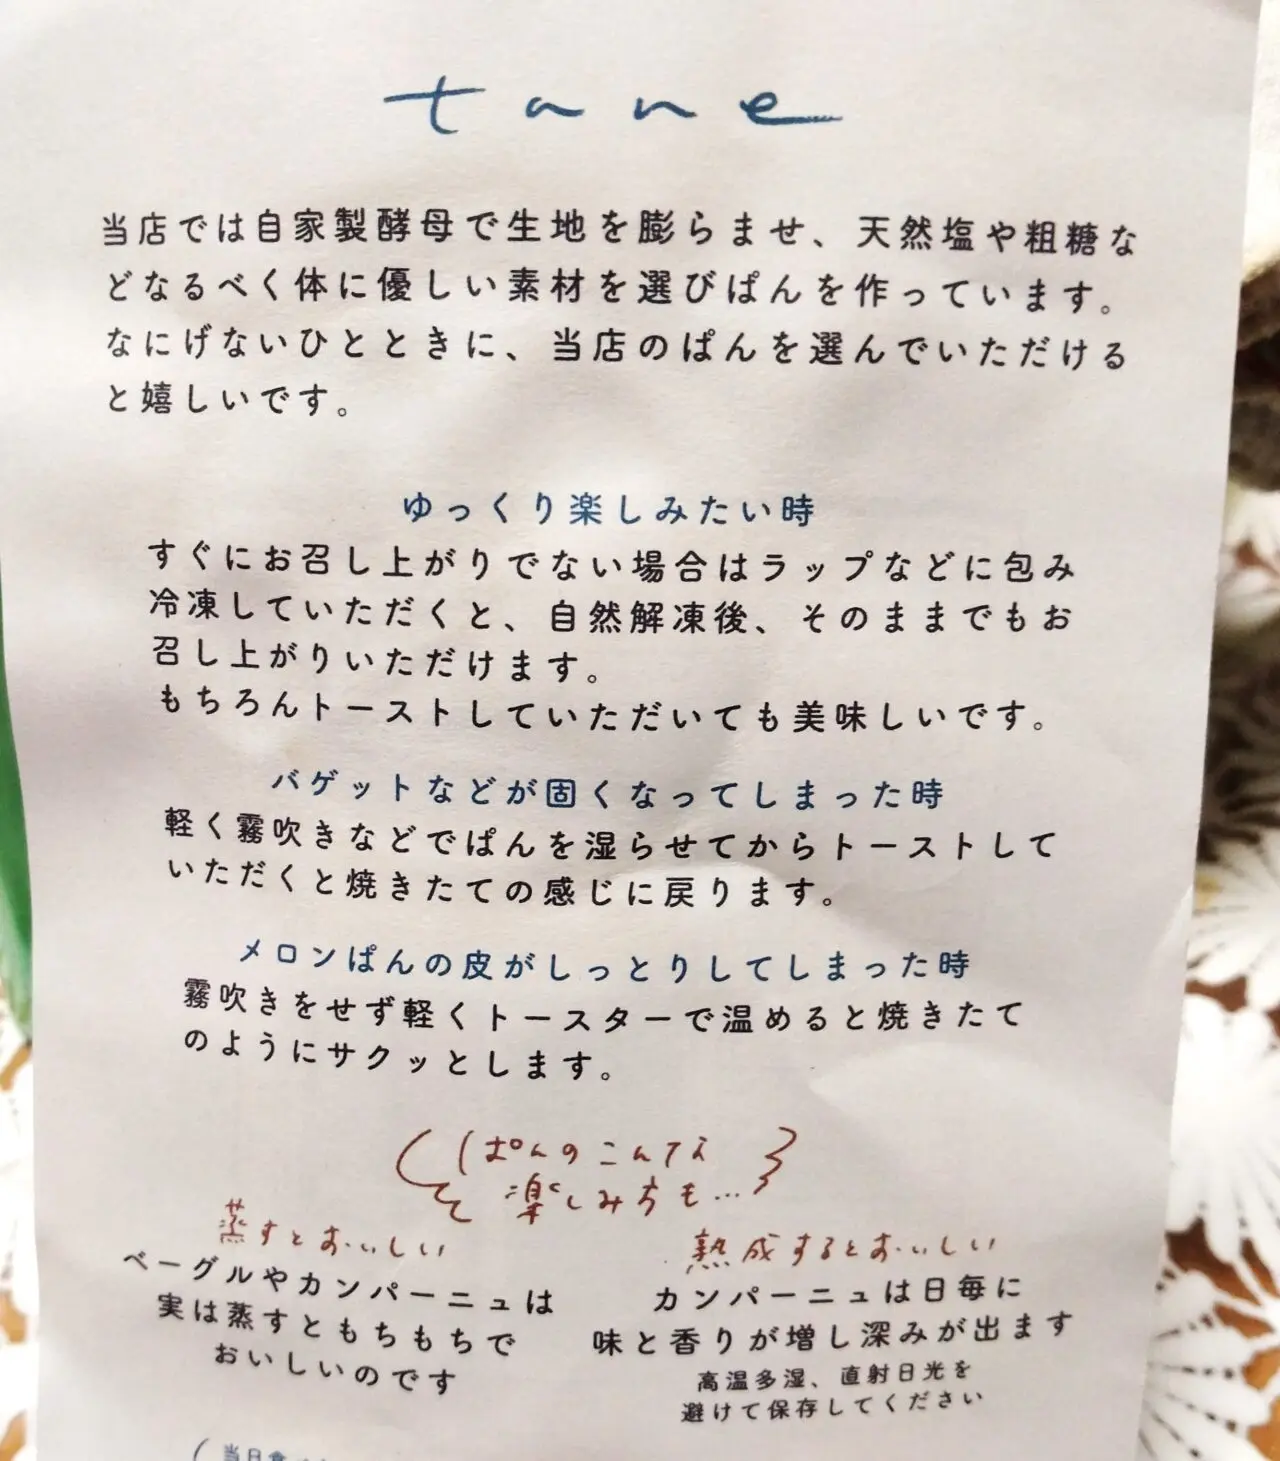 tane
当店では自家製酵母で生地を膨らませ、天然塩や粗糖な
どなるべく体に優しい素材を選びぱんを作っています。
なにげないひとときに、当店のぱんを選んでいただける
と嬉しいです。
ゆっくり楽しみたい時
すぐにお召し上がりでない場合はラップなどに包み
冷凍していただくと、自然解凍後、そのままでもお
召し上がりいただけます。
もちろんトーストしていただいても美味しいです。
バゲットなどが固くなってしまった時
軽く霧吹きなどでぱんを湿らせてからトーストして
いただくと焼きたての感じに戻ります。
メロンぱんの皮がしっとりしてしまった時
霧吹きをせず軽くトースターで温めると焼きたて
のようにサクッとします。
ぱんのこんな
楽しみ方も…
蒸すとおいしい
ベーグルやカンパーニュは
実は蒸すともちもちで
おいしいのです
熟成するとおいしい
カンパーニュは日毎に
味と香りが増し深みが出ます
高温多湿、直射日光を
避けて保存してください
当日食